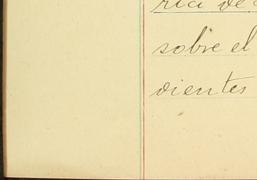 ria de
sobre el
dientes